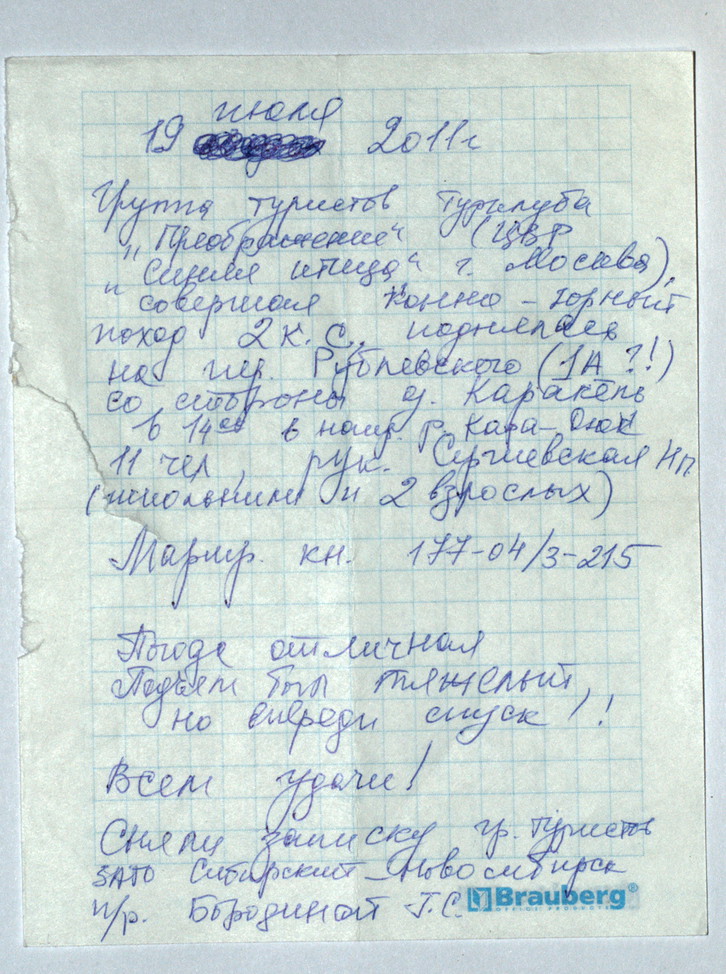 июля
19 2011г
Группа туристов Турклуба
"Преображение" (ЦВР
"Синяя птица" г. Москва),
совершая конно-горный
поход 2 к.с., поднялась
на пер. Рублевского (1А ?!)
со стороны д. Каракель
в 14 00 в напр. р. Кара-Оюк
11 чел, рук. Сергиевская НП
(школьники и 2 взрослых)
Маршр. кн. 177-04/3-215
Погода отличная
Подъем был тяжелый,
но впереди спуск!!
Всем удачи!
Сняли записку гр. туристов
Сибирский Новосибирск
п/р. Бородиной Т.С.
Brauberg®